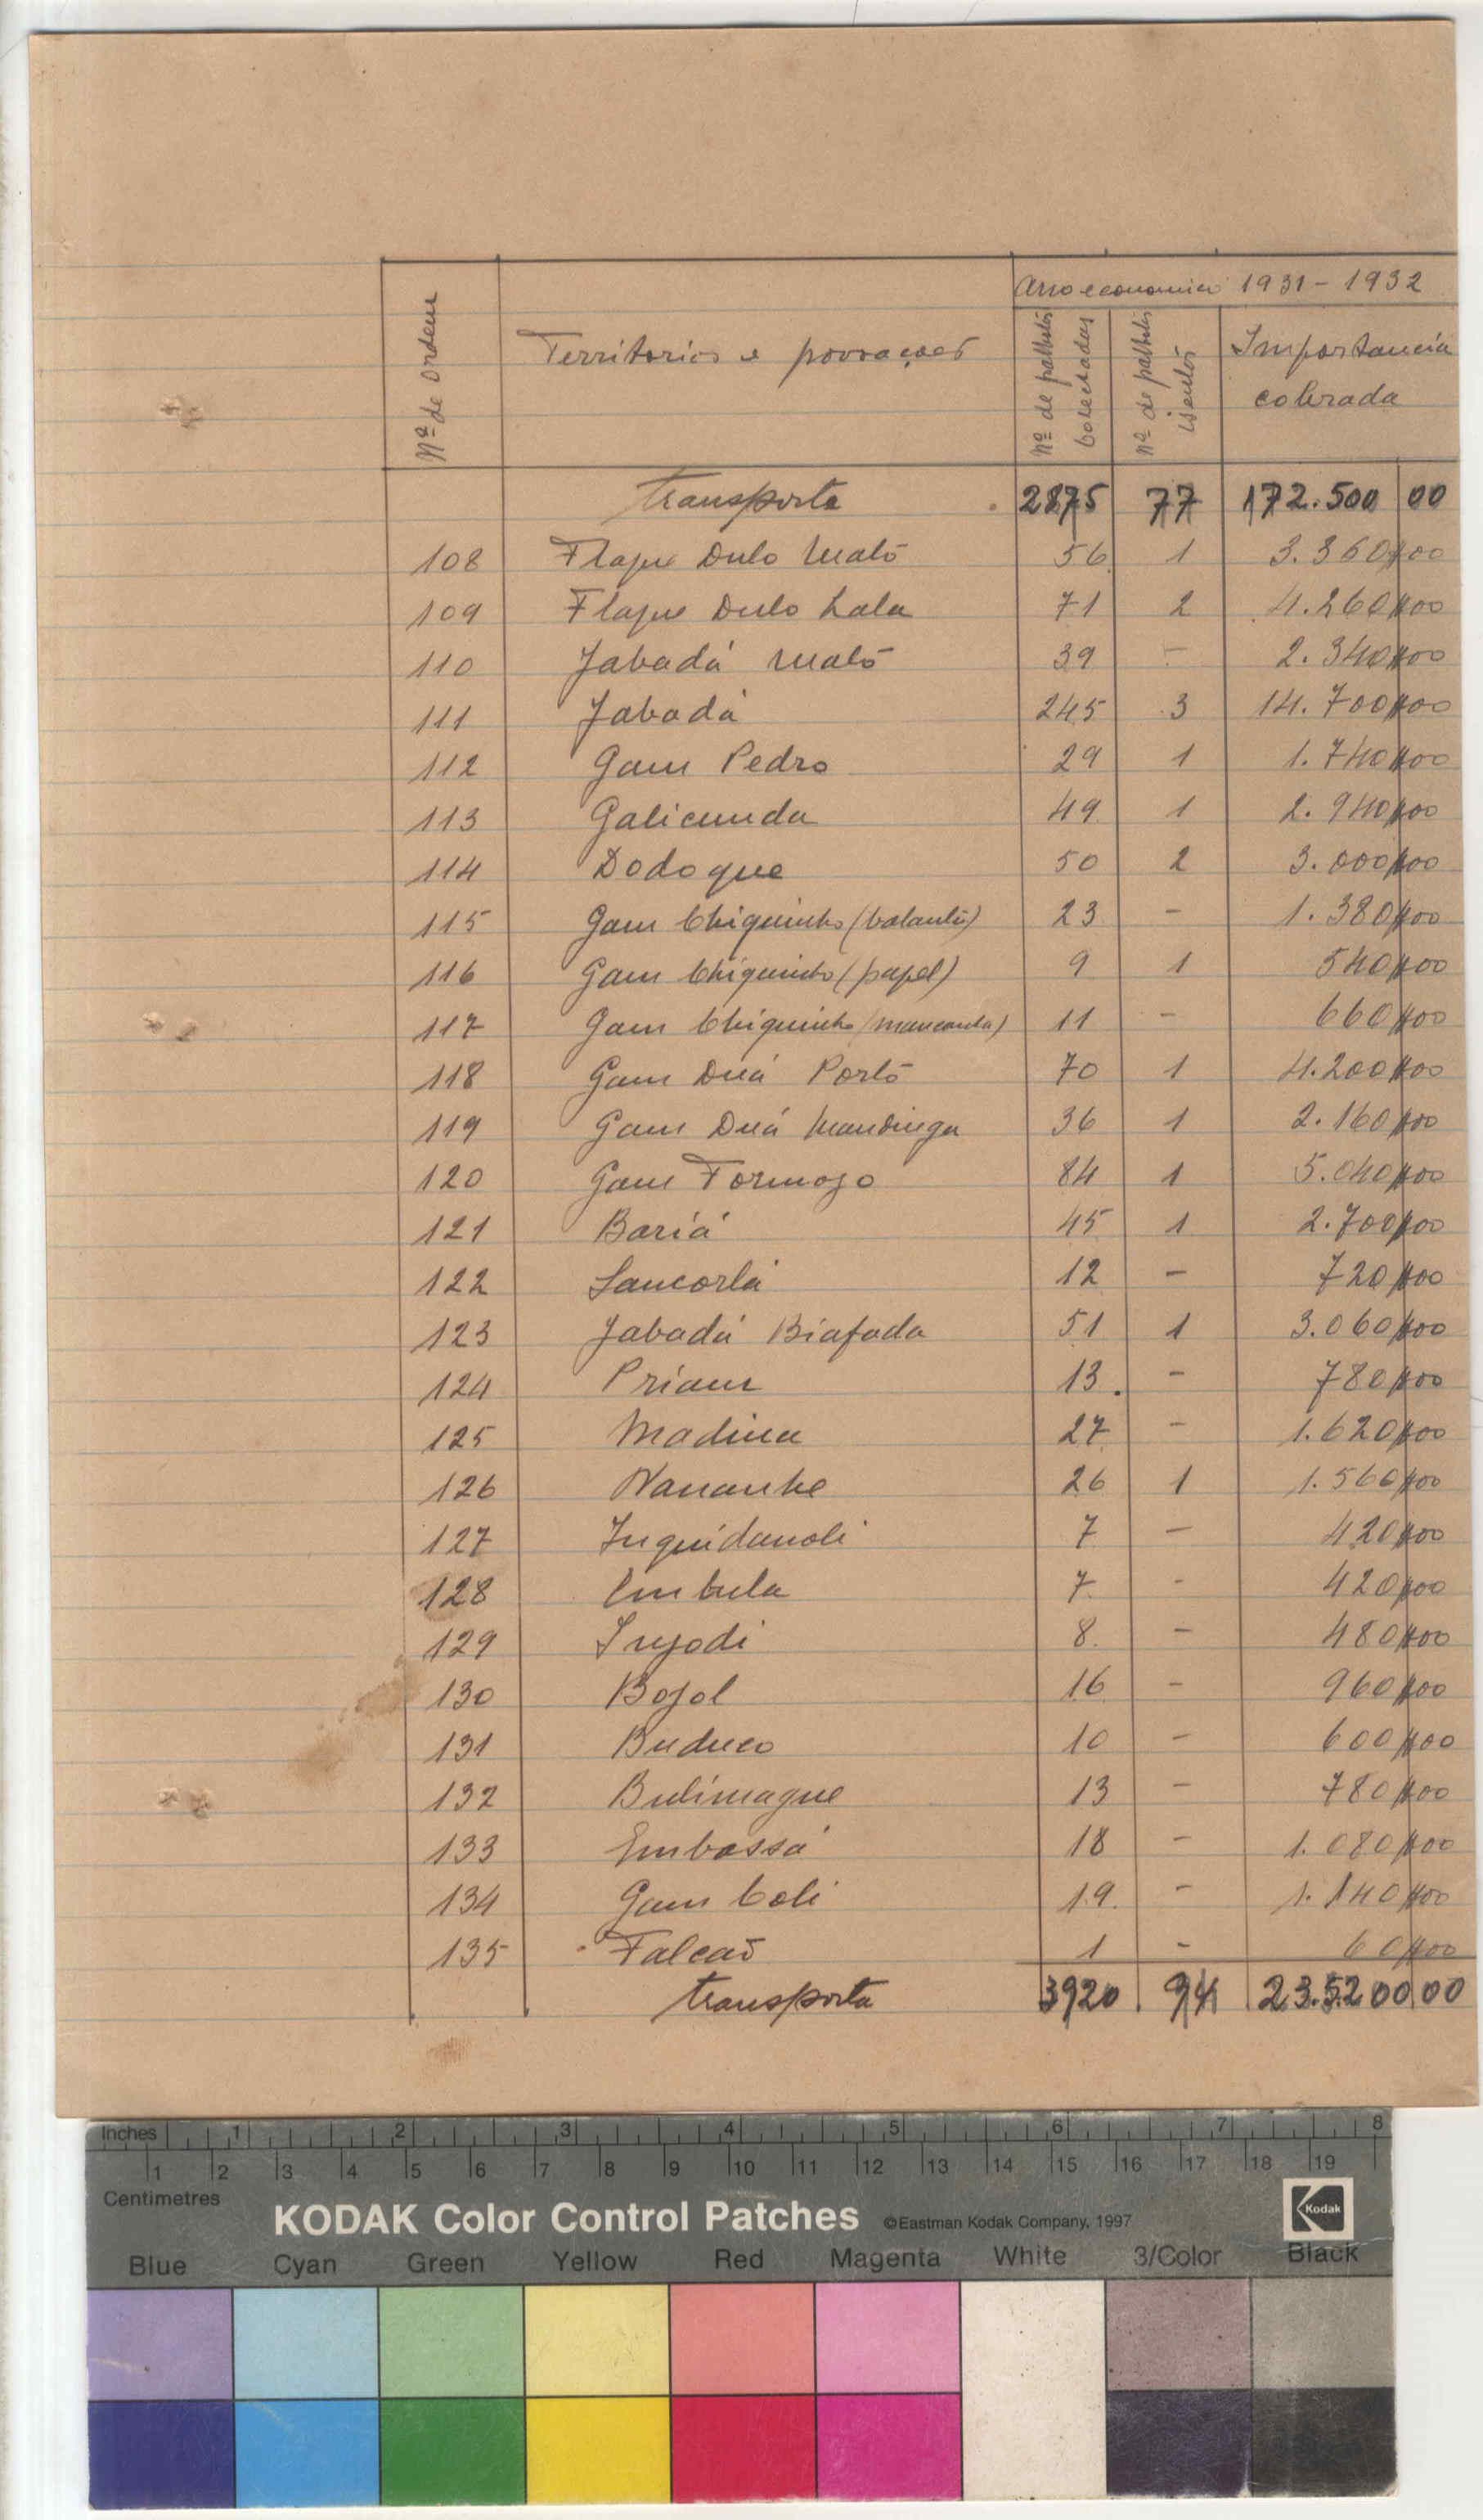 Ano economico 1931 - 1932
Nº de ordem
Territorios e povoações
Nº de palhotas colectadas
Nº de palhotas isentas
Importancia cobrada
Transporte 2875 77 172.500 00
108 Flaque Dulo Mato 56 1 3.360$00
109 Flaque Dulo Lala 71 2 4.260$00
110 Jabadá Mato 39 - 2.340$00
111 Jabadá 245 3 14.700$00
112 Gam Pedro 29 1 1.740$00
113 Galicunda 49 1 2.940$00
114 Dodo que 50 2 3.000$00
115 Gam Chiquinho (balanta) 23 - 1.380$00
116 Gam Chiquinho (papel) 9 1 540$00
117 Gam Chiquinho (mancanha) 11 - 660$00
118 Gam Duá Porto 70 1 4.200$00
119 Gam Duá Mandinga 36 1 2.160$00
120 Gam Formoso 84 1 5.040$00
121 Bariá 45 1 2.700$00
122 Sancorlá 12 - 720$00
123 Jabadá Biafada 51 1 3.060$00
124 Priam 13. - 780$00
125 Madina 27 - 1.620$00
126 Nananhe 26 1 1.560$00
127 Inquidanoli 7 - 420$00
128 Embula 7 - 420$00
129 8 - 480$00
130 Bojol 16 - 960$00
131 Buduco 10 - 600$00
132 Bulimaque 13 - 780$00
133 Embassá 18 - 1.080$00
134 Gam Coli 19 - 1.140$00
135 Falcão 1 - 60$00
Transporte 3920 94 23.5.200 00
Inches 1 2 3 4 5 6 7 8
1 2 3 4 5 6 7 8 9 10 11 12 13 14 15 16 17 18 19
Centimetres
KODAK Color Control Patches ©Eastman Kodak Company, 1997 Kodak
Blue Cyan Green Yellow Red Magenta White 3/Color Black